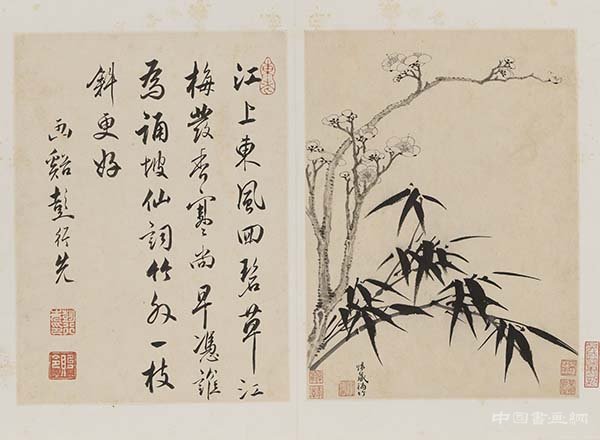 江上東風回碧草江
梅發香寒尚早憑誰
為誦坡仙詞竹外一枝
斜更好
西谿彭行先
補竹
中国書画網